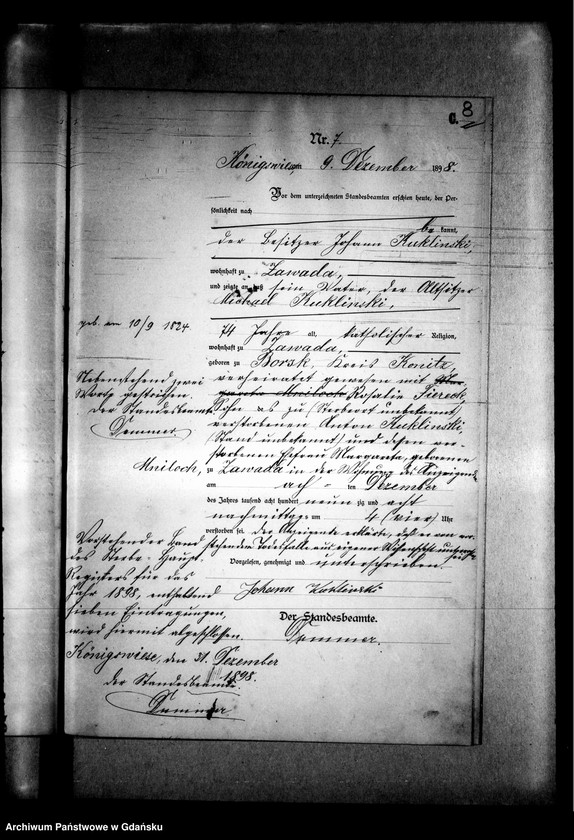 8
C.
Nr. 7.
Königswiese am 9. Dezember 1898.
Vor dem unterzeichneten Standesbeamten erschien heute, der Per-
sönlichkeit nach
be kannt,
der Besitzer Johann Kuklinski,
wohnhaft zu Zawada,
und zeigte an, daß sein Vater, der Altsitzer
Michael Kuklinski,
geb. am 10/9 1824.
74 Jahre alt, katholischer Religion,
wohnhaft zu Zawada,
geboren zu Borsk, Kreis Konitz,
verheiratet gewesen mit
Mniloch Rosalie Piereck,
Nebenstehend zwei
Worte gestrichen.
Der Standesbeamte
Demmer.
Sohn des zu (Sterbeort unbekannt)
verstorbenen Anton Kuklinski
(Stand unbekannt) und dessen ver-
storbenen Ehefrau Margaretha, geborenen
Mniloch, zu Zawada in der Wohnung des Anzeigenden
am acht ten Dezember
des Jahres tausend acht hundert neun zig und acht
nachmittags um 4 (vier) Uhr
verstorben sei. Der Anzeigende erklärte, daß er von vor-
stehendem Todesfalle aus eigener Wissenschaft unterrichtet sei.
Vorgelesen, genehmigt und unterschrieben.
Johann Kuklinski
Der Standesbeamte.
Demmer.
Vorstehender Band
des Sterbe-Haupt-
Registers für das
Jahr 1898, enthaltend
sieben Eintragungen,
wird hiermit abgeschlossen.
Königswiese, den 31. Dezember
1898.
Der Standesbeamte.
Demmer
Archiwum Państwowe w Gdańsku